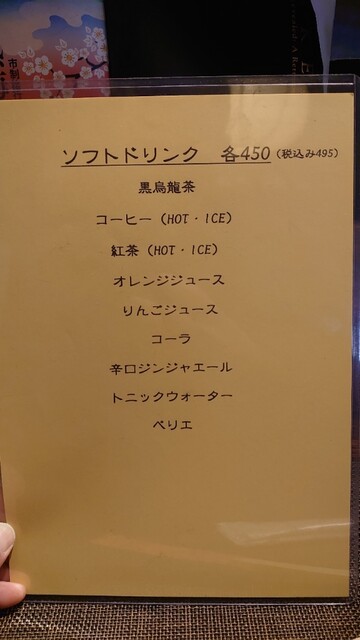 市制
ソフトドリンク 各450（税込み495）
黒烏龍茶
コーヒー（HOT・ICE）
紅茶（HOT・ICE）
オレンジジュース
りんごジュース
コーラ
辛口ジンジャエール
トニックウォーター
ペリエ